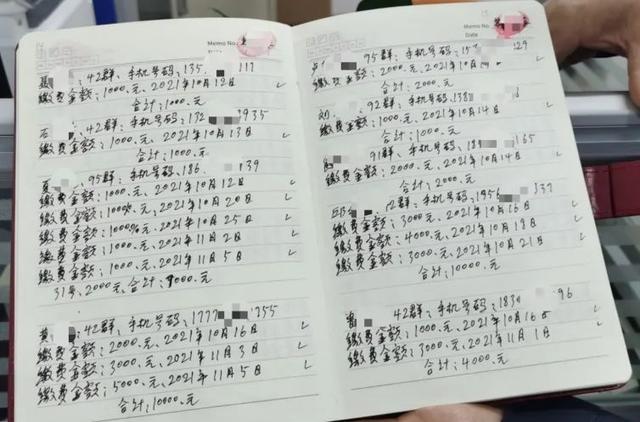 Memo No.
42群、手机号码:135 117
缴费金额:1000.元、2021年10月12日
合计:1000.元
石 :42群、手机号码:132 3935
缴费金额:1000.元、2021年10月13日
合计:1000.元
95群、手机号码:186. 839
缴费金额:1000.元、2021年10月12日
缴费金额:1000.元、2021年10月20日
缴费金额:1000.元、2021年10月25日
缴费金额:1000.元、2021年11月2日
缴费金额:1000.元、2021年11月5日
31号、2000元、合计:7000.元
黄 :42群:手机号码:1777 755
缴费金额:2000.元、2021年10月16日
缴费金额:3000.元、2021年11月3日
缴费金额:5000.元、2021年11月5日
合计:10000.元
Memo No.
Date
卢 95群:手机号码:15 29
缴费金额:2000.元、2021年10月
合计:2000.元
刘 、92群:手机号码:1381 6
缴费金额:1000.元、2021年10月14日
合计:1000.元
91群、手机号码:18 165
缴费金额:2000.元、2021年10月14日
合计:2000.元
邱 2群、手机号码:1956 337
缴费金额:3000元、2021年10月16日
缴费金额:4000.元、2021年10月18日
缴费金额:3000.元、2021年10月21日
合计:10000.元
42群:手机号码:1830 96
缴费金额:1000.元、2021年10月16日
缴费金额:3000.元、2021年11月1日
合计:4000.元